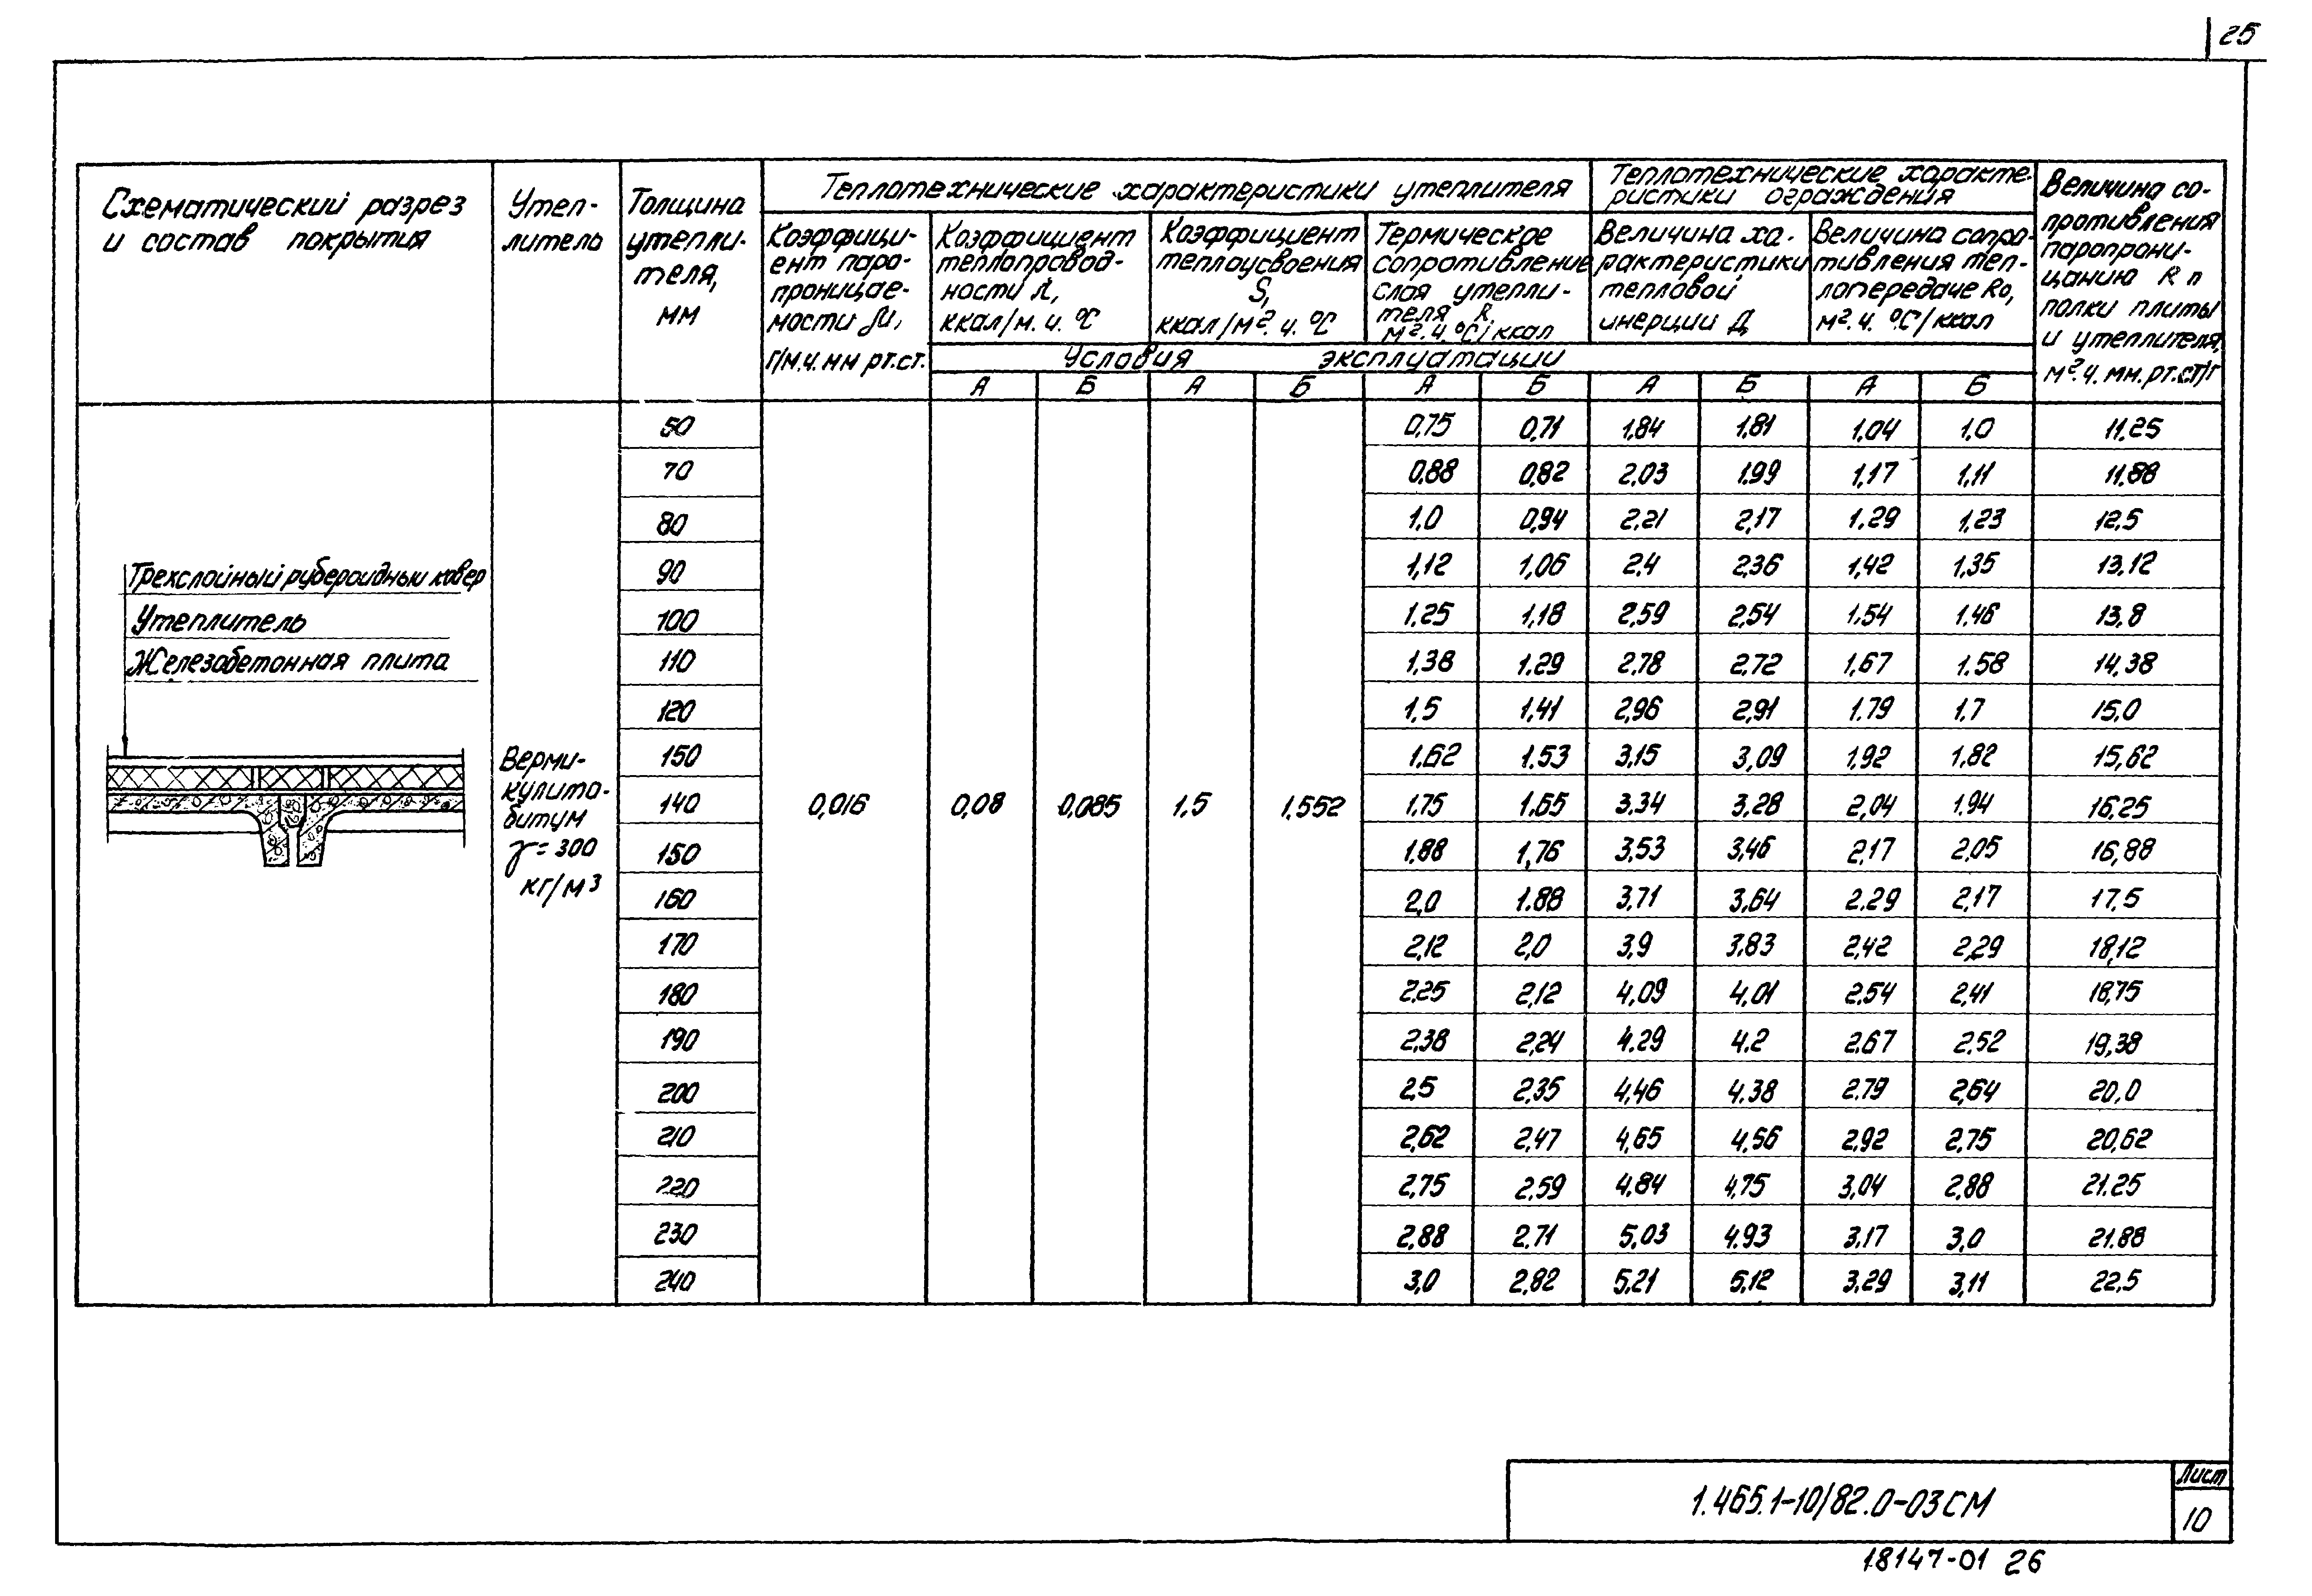 25
Схематический разрез
и состав покрытия
Утеп-
литель
Толщина
утепли-
теля,
мм
Теплотехнические характеристики утеплителя
Теплотехнические характе-
ристики ограждения
Величина со-
противления
паропрони-
цанию Rп
полки плиты
и утеплителя,
м².ч.мм.рт.ст/г
Коэффици-
ент паро-
проницае-
мости μ,
г/м.ч.мм рт.ст.
Коэффициент
теплопровод-
ности λ,
ккал/м.ч.°С
Коэффициент
теплоусвоения
S,
ккал/м².ч.°С
Термическое
сопротивление
слоя утепли-
теля R,
м².ч.°С/ккал
Величина ха-
рактеристики
тепловой
инерции Д
Величина сопро-
тивления теп-
лопередаче Rо,
м².ч.°С/ккал
Условия эксплуатации
А Б А Б А Б А Б А Б
50 0,75 0,71 1,84 1,81 1,04 1,0 11,25
70 0,88 0,82 2,03 1,99 1,17 1,11 11,88
80 1,0 0,94 2,21 2,17 1,29 1,23 12,5
90 1,12 1,06 2,4 2,36 1,42 1,35 13,12
100 1,25 1,18 2,59 2,54 1,54 1,46 13,8
110 1,38 1,29 2,78 2,72 1,67 1,58 14,38
120 1,5 1,41 2,96 2,91 1,79 1,7 15,0
150 1,62 1,53 3,15 3,09 1,92 1,82 15,62
140 0,016 0,08 0,085 1,5 1,552 1,75 1,65 3,34 3,28 2,04 1,94 16,25
150 1,88 1,76 3,53 3,46 2,17 2,05 16,88
160 2,0 1,88 3,71 3,64 2,29 2,17 17,5
170 2,12 2,0 3,9 3,83 2,42 2,29 18,12
180 2,25 2,12 4,09 4,01 2,54 2,41 18,75
190 2,38 2,24 4,29 4,2 2,67 2,52 19,38
200 2,5 2,35 4,46 4,38 2,79 2,64 20,0
210 2,62 2,47 4,65 4,56 2,92 2,75 20,62
220 2,75 2,59 4,84 4,75 3,04 2,88 21,25
230 2,88 2,71 5,03 4,93 3,17 3,0 21,88
240 3,0 2,82 5,21 5,12 3,29 3,11 22,5
Трехслойный рубероидный ковер
Утеплитель
Железобетонная плита
Верми-
кулито-
битум
γ=300
кг/м3
1.465.1-10/82.0-03СМ
Лист
10
18147-01 26